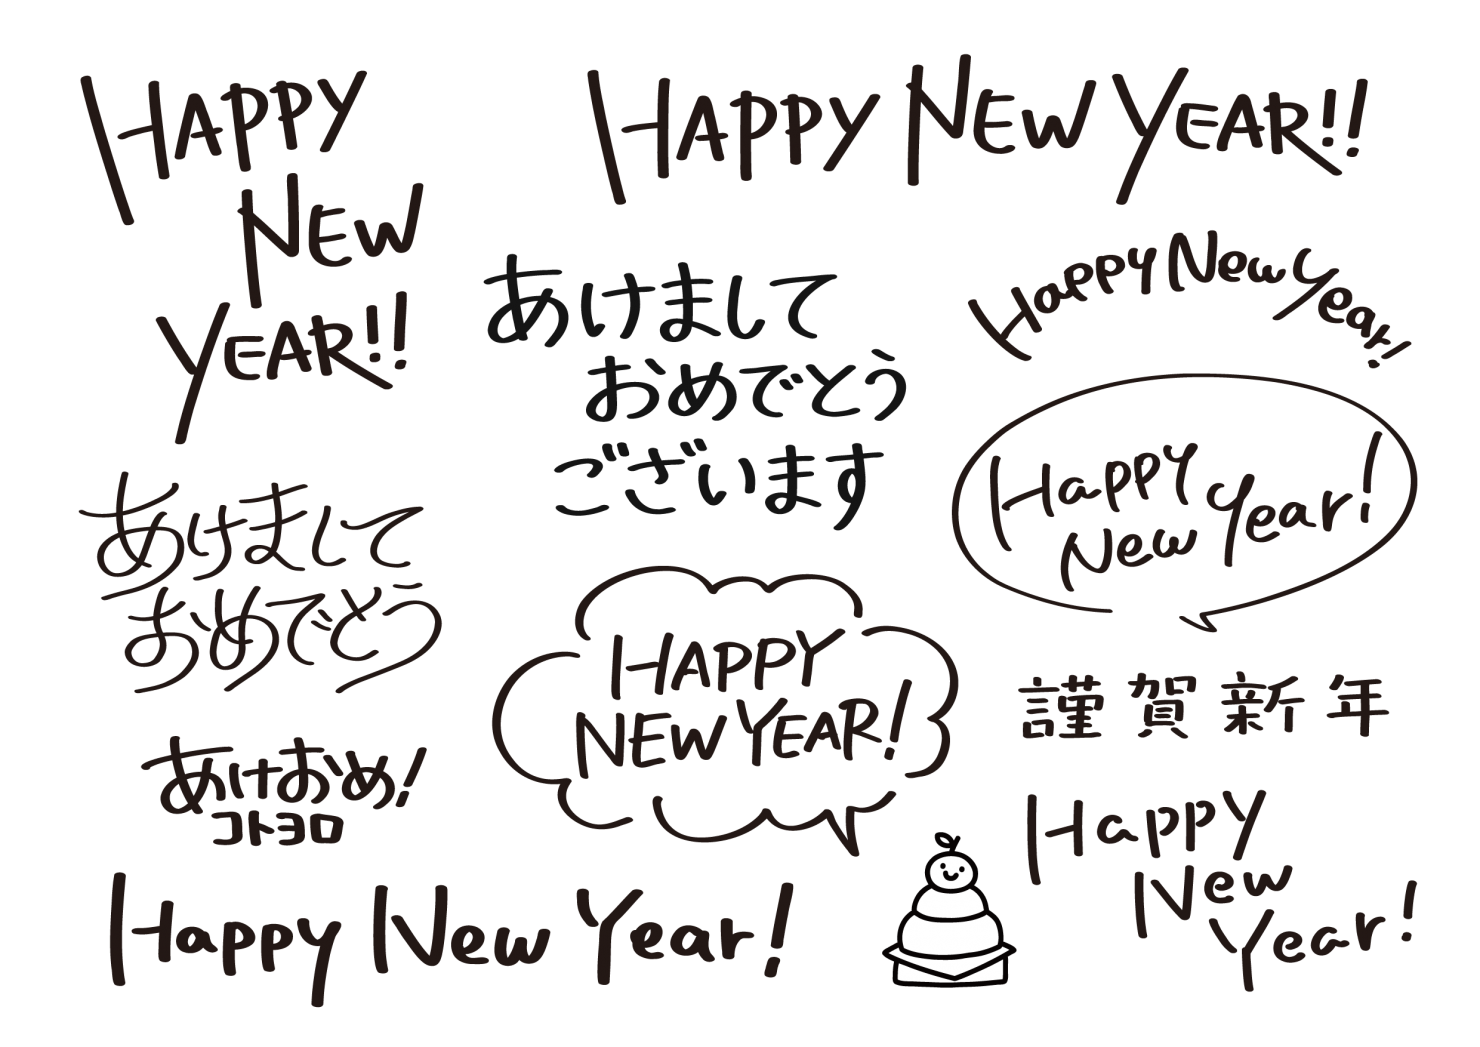 HAPPY
NEW
YEAR!!
HAPPY NEW YEAR!!
Happy New Year!
あけまして
おめでとう
ございます
Happy
New Year!
あけまして
おめでとう
HAPPY
NEW YEAR!
謹賀新年
あけおめ!
コトヨロ
Happy
New
Year!
Happy New Year!